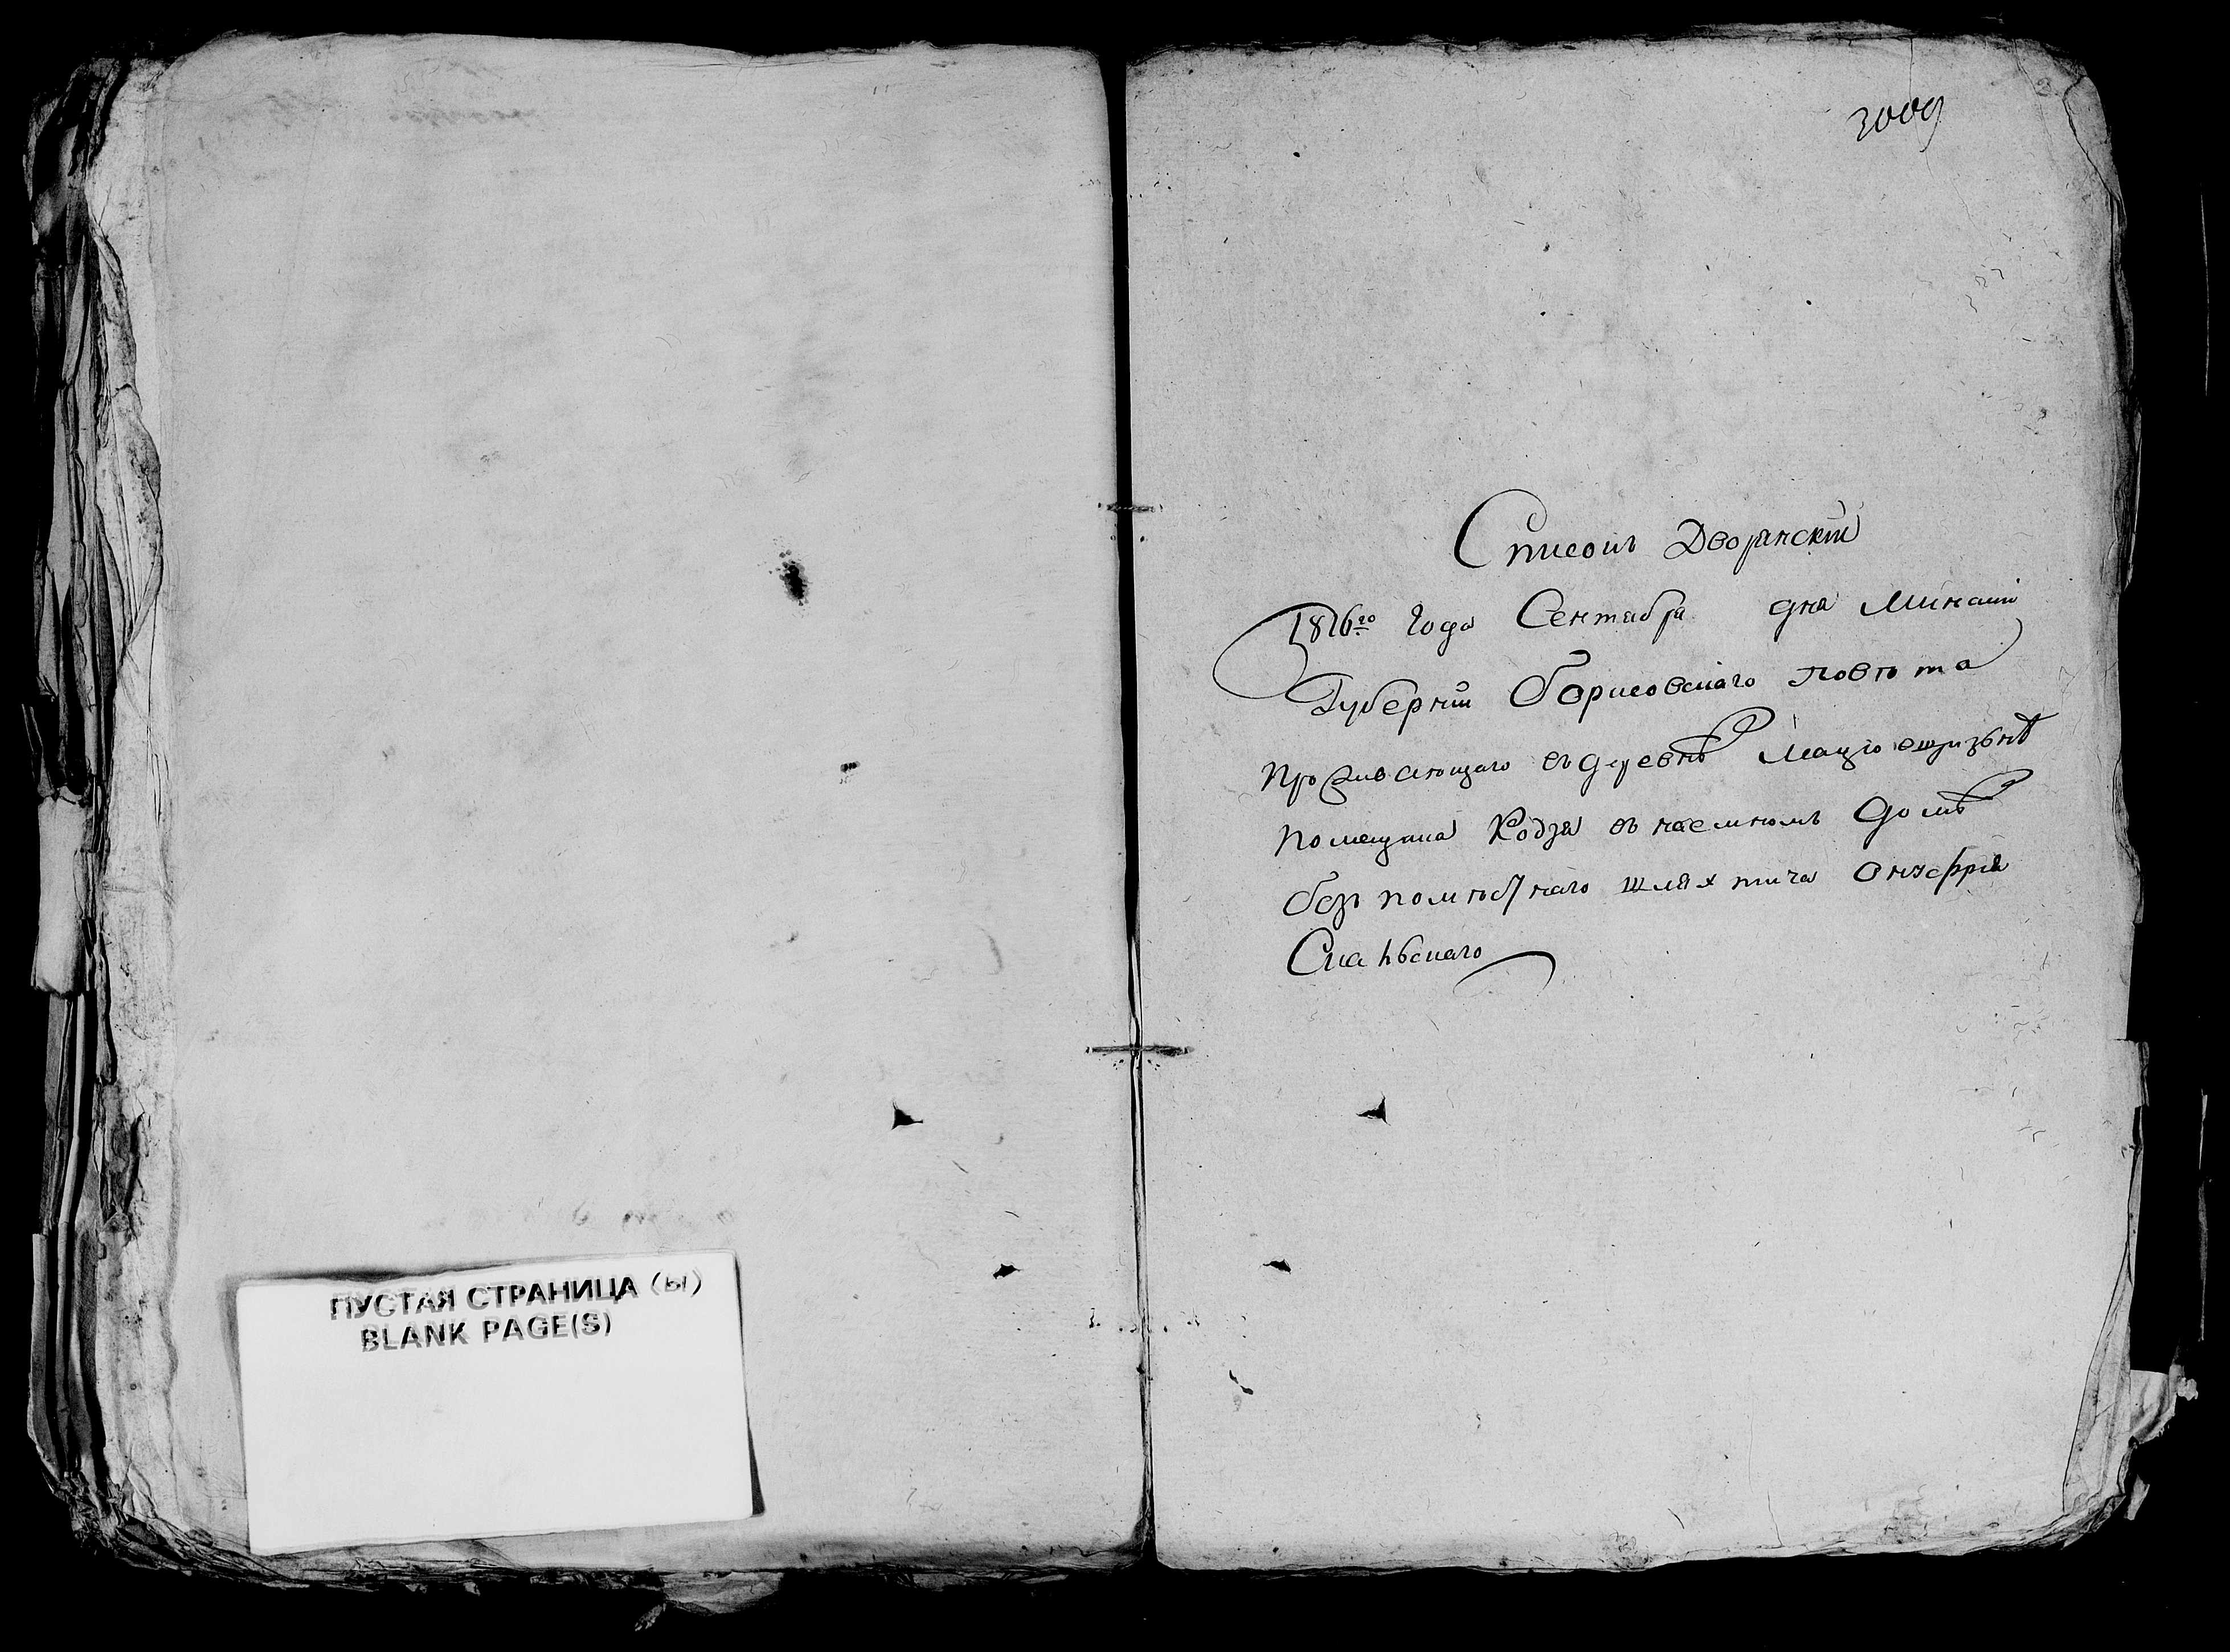 ПУСТАЯ СТРАНИЦА (Ы)
BLANK PAGE(S)
3009
Списокъ Дворянскій
1816го года Сентября дня Минской
Губерніи Борисовскаго повѣта
проживающаго въ деревнѣ
помещика Кодзя въ наемномъ домѣ
безпоместнаго шляхтича Онуфрія